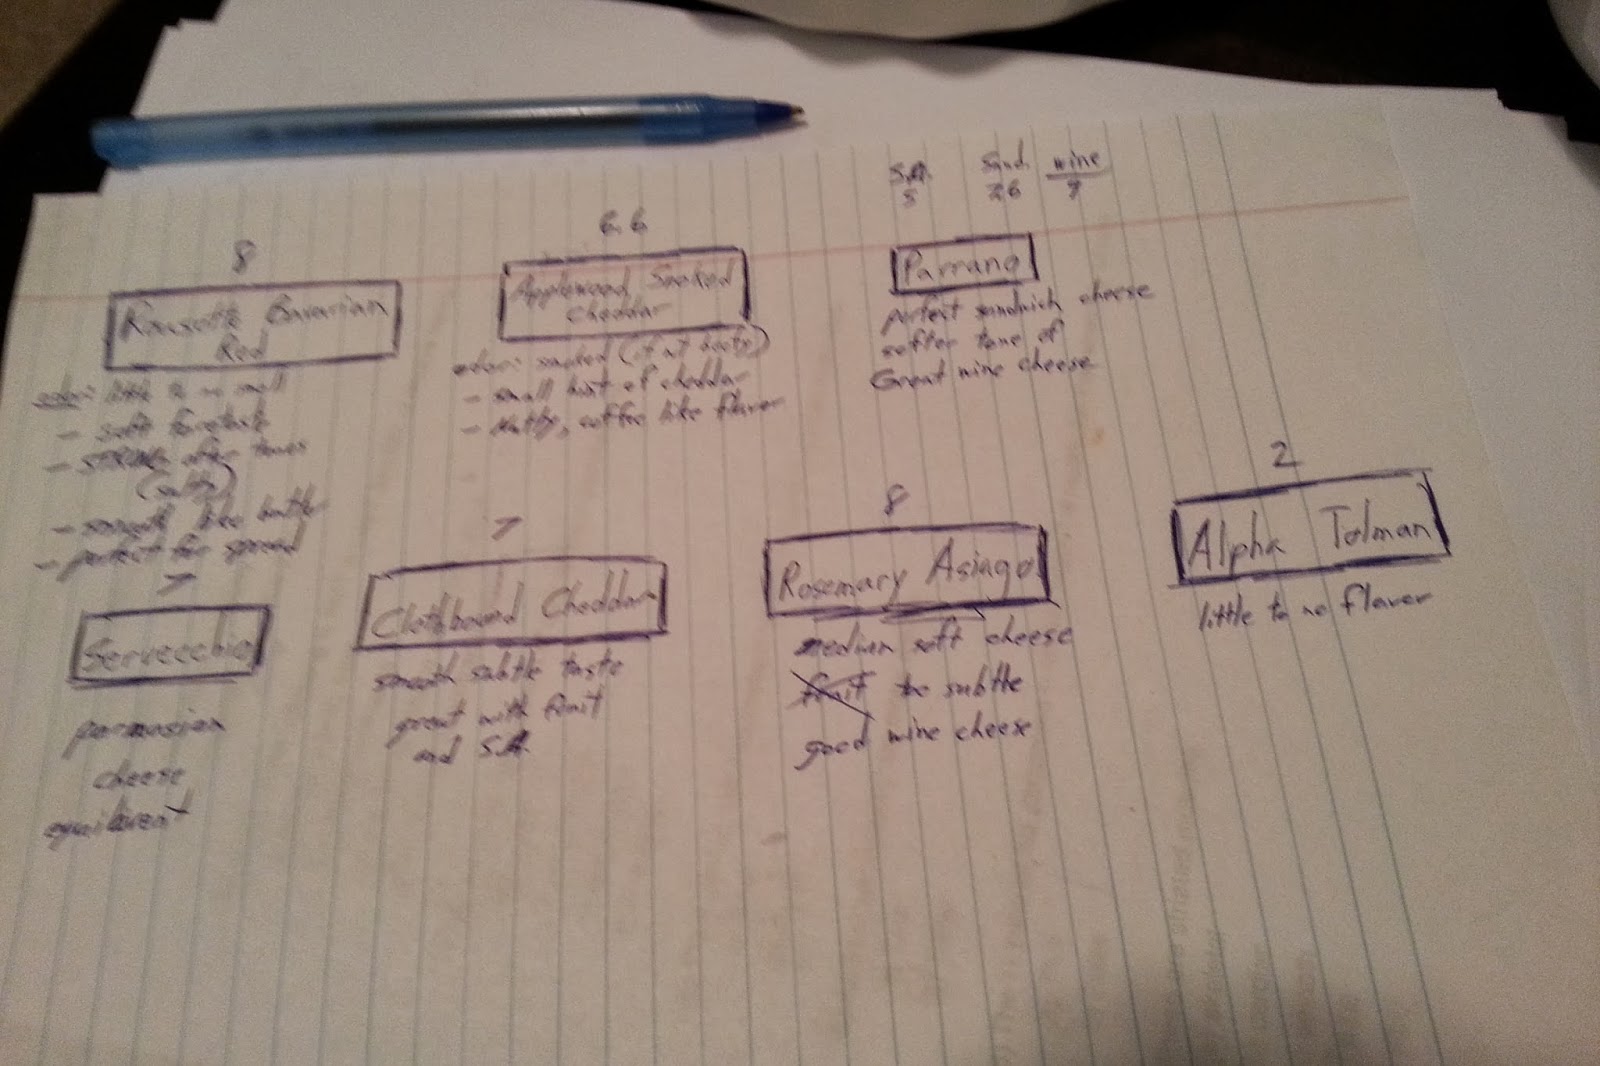 8
Bavarian
Red
odor: little to no smell
- soft foretaste
- STRONG after tones
(salty)
- smooth like butter
- perfect for spread
6.6
Applewood Smoked
Cheddar
odor: smoked (if at
- small hint of cheddar
- Nutty, coffee like flavor
S.A. Sand. wine
5 26 9
Parrano
perfect sandwich cheese
softer tone of
Great wine cheese
7
Servecchio
cheese
7
Clothbound Cheddar
smooth subtle taste
great with fruit
and S.A.
8
Rosemary Asiago
medium soft cheese
too subtle
good wine cheese
2
Alpha Tolman
little to no flavor